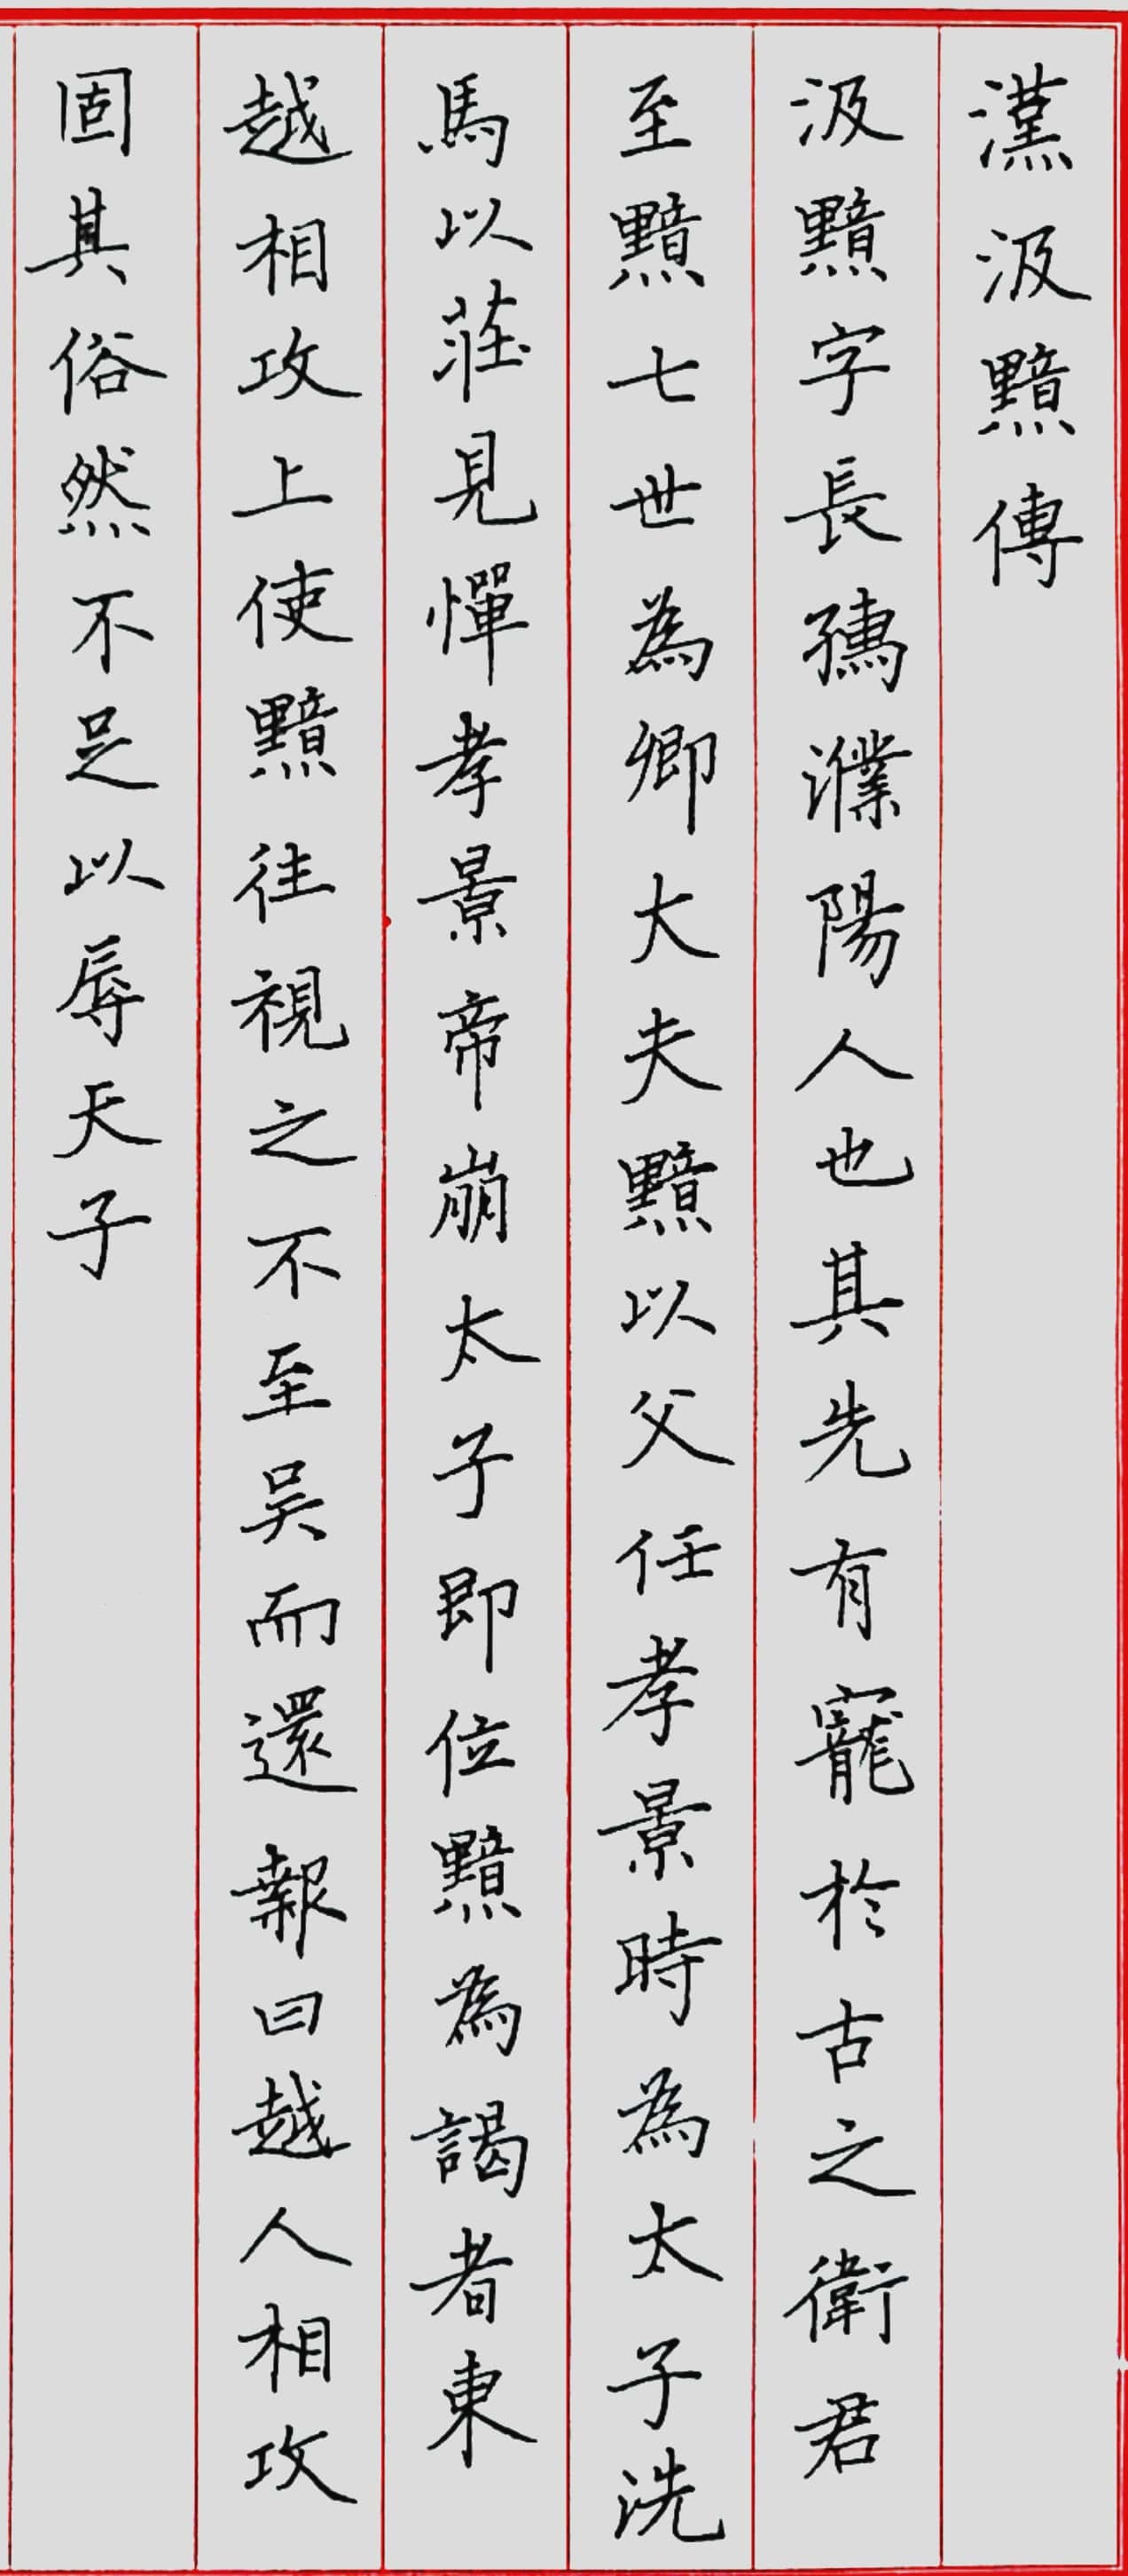 漢汲黯傳
汲黯字長孺濮陽人也其先有寵於古之衛君
至黯七世為卿大夫黯以父任孝景時為太子洗
馬以莊見憚孝景帝崩太子即位黯為謁者東
越相攻上使黯往視之不至吳而還報曰越人相攻
固其俗然不足以辱天子